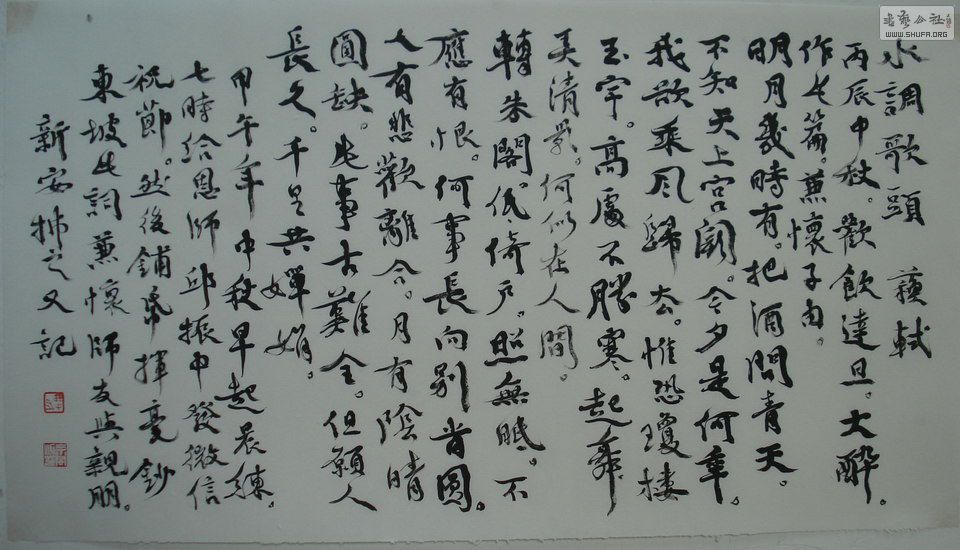 水調歌頭 蘇軾
丙辰中秋。歡飲達旦。大醉。
作此篇。兼懷子由。
明月幾時有。把酒問青天。
不知天上宮闕。今夕是何年。
我欲乘风歸去。惟恐瓊樓
玉宇。高處不勝寒。起舞
弄清影。何似在人間。
轉朱閣。低倚戶。照無眠。不
應有恨。何事長向別时圓。
人有悲歡離合。月有陰晴
圓缺。此事古難全。但願人
長久。千里共嬋娟。
甲午年中秋早起晨練。
七時給恩師邱振中發微信
祝節。然後鋪紙揮毫鈔
東坡此詞兼懷師友與親朋。
新安拂之又記
書藝公社
WWW.SHUFA.ORG